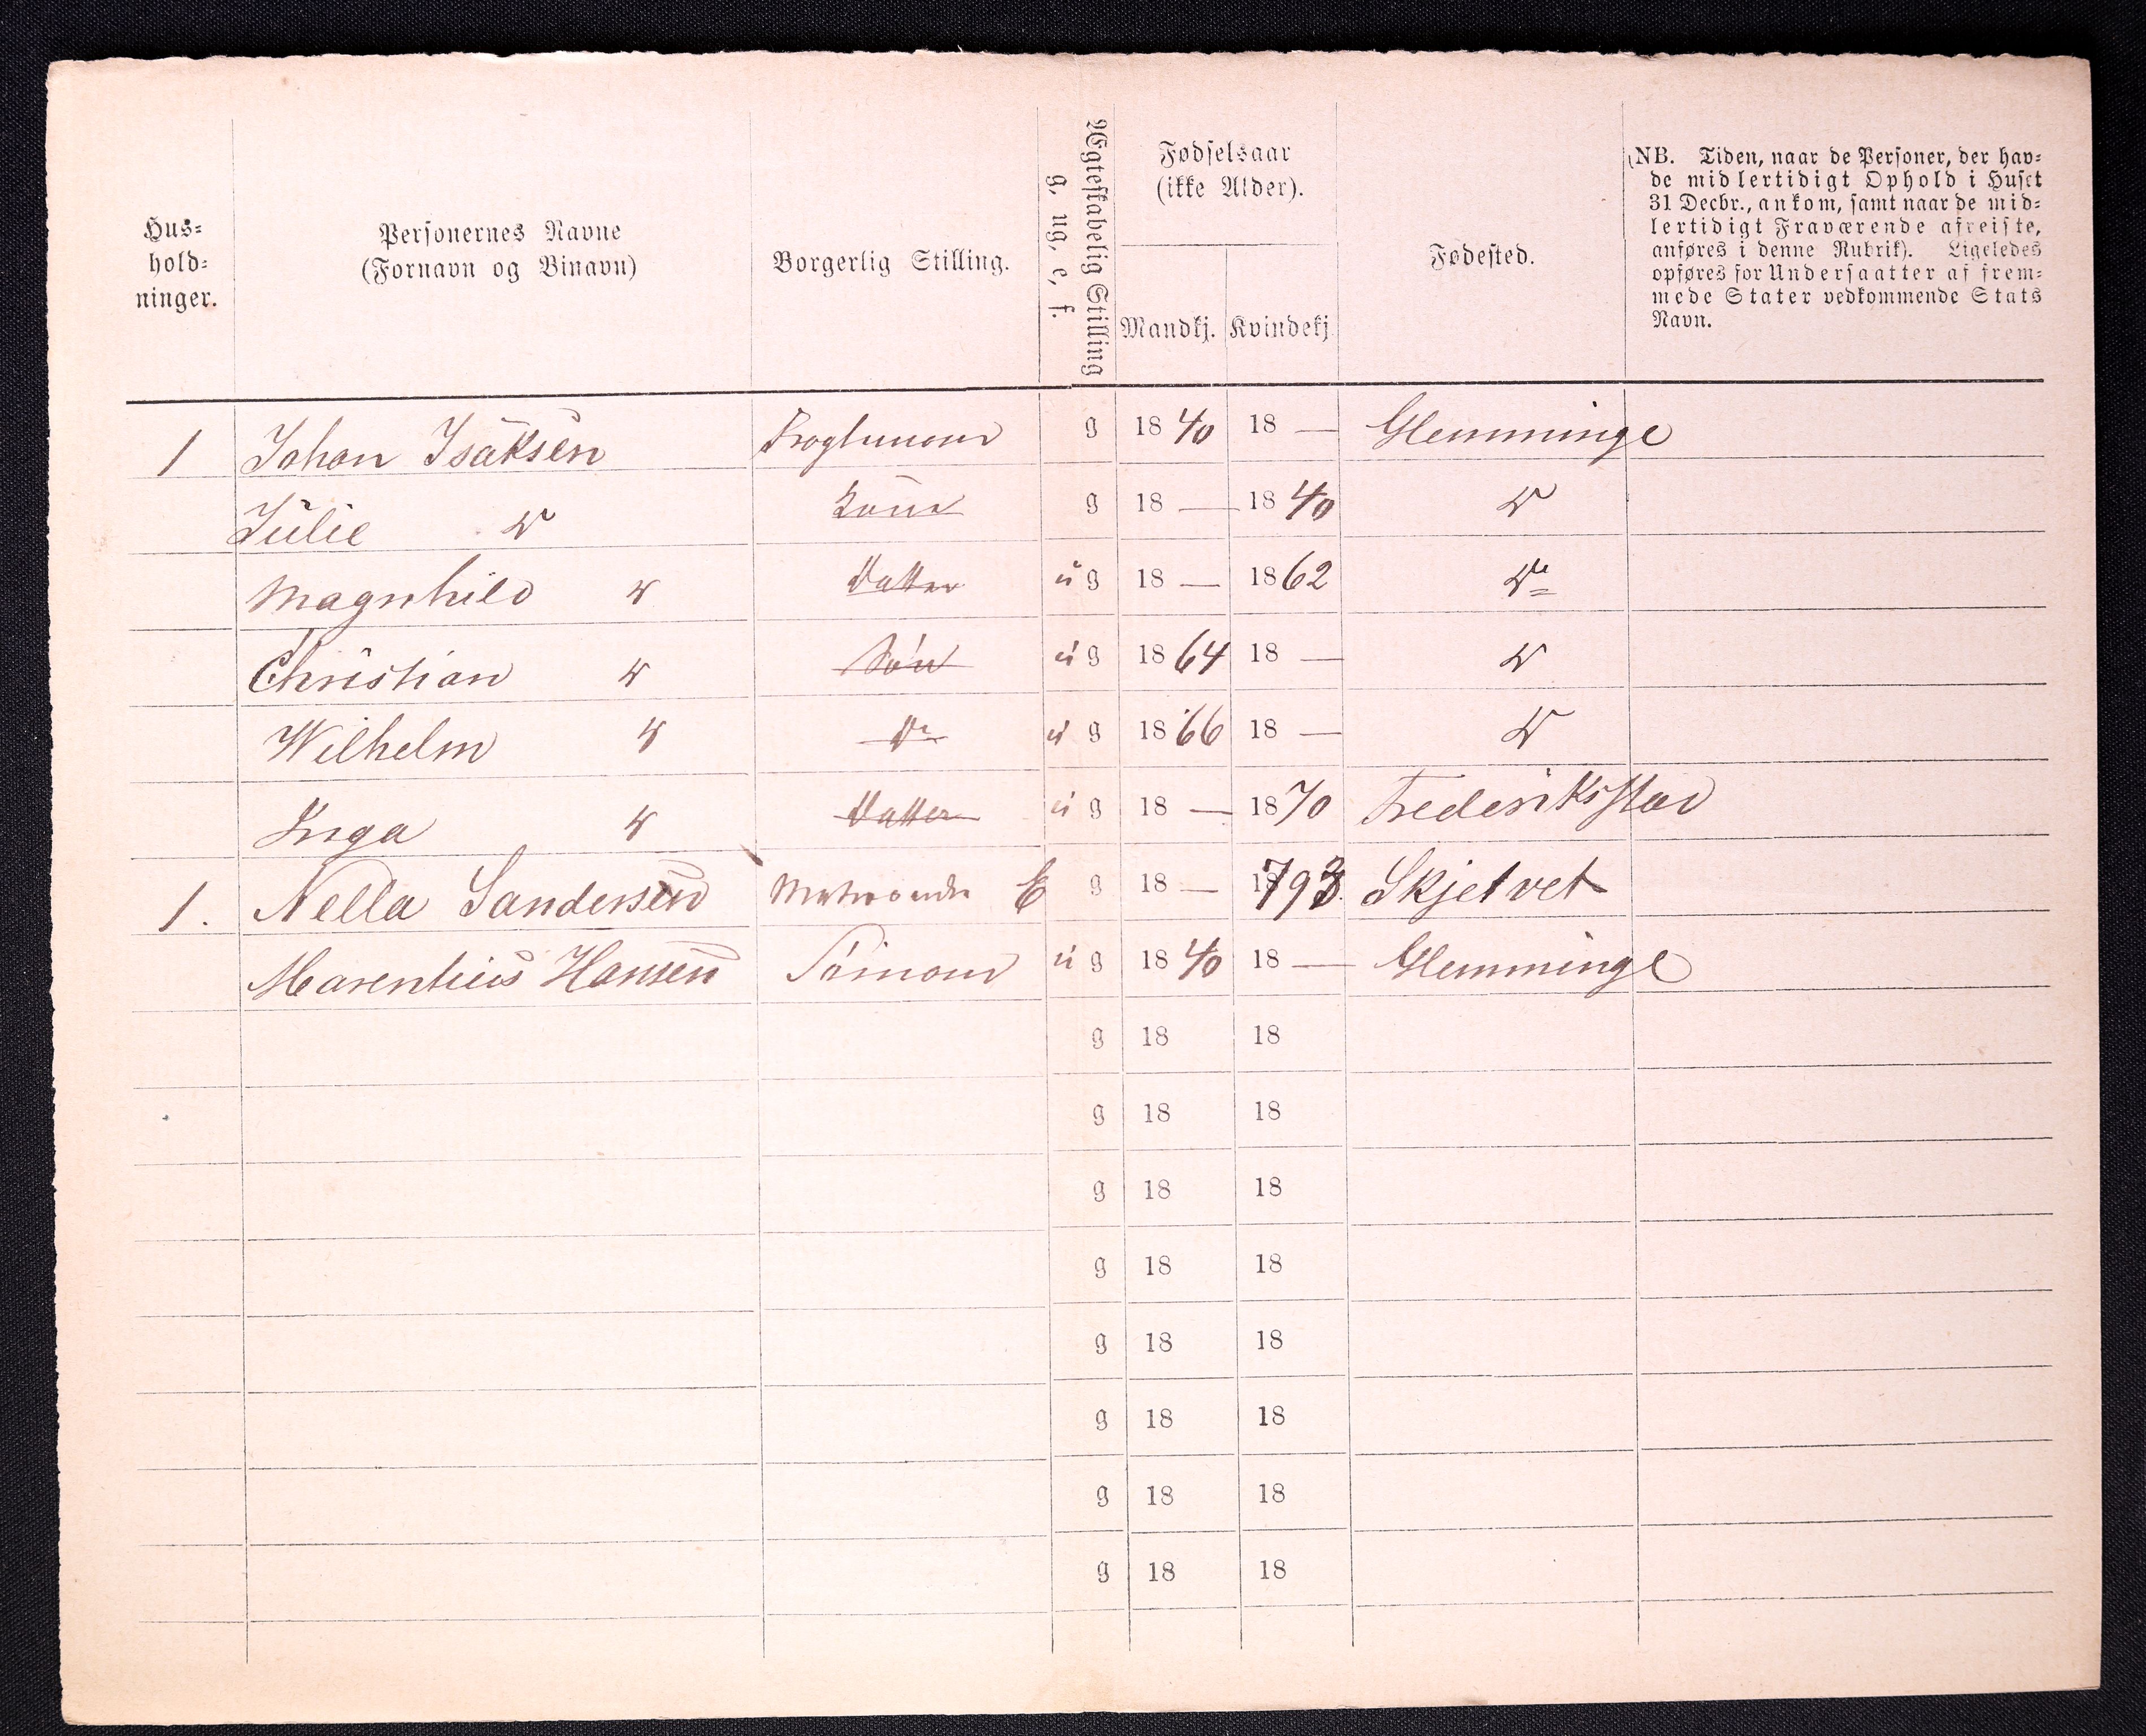 Hus-
hold-
ninger.
Personernes Navne
(Fornavn og Binavn)
Borgerlig Stilling.
Ægteskabelig Stilling
g, ug, e, f.
Fødselsaar
(ikke Alder).
Mandkj. Kvindekj.
Fødested.
(NB. Tiden, naar de Personer, der hav-
de midlertidigt Ophold i Huset
31 Decbr., ankom, samt naar de mid-
lertidigt Fraværende afreiste,
anføres i denne Rubrik). Ligeledes
opføres for Undersaatter af frem-
mede Stater vedkommende Stats
Navn.
1 Johan Isaksen g 1840 18 — Glemminge
Julie Do Kone g 18 — 1840 Do
Magnhild Do Datter ug 18 — 1862 Do
Christian Do Søn ug 1864 18 — Do
Wilhelm Do Do ug 1866 18 — Do
Inga Do Datter ug 18 — 1870 Frederikstad
1. Nella Sandersen E g 18 — 1793 Skjelvet
Marentius Hansen Sömand ug 1840 18 — Glemminge
g 18 18
g 18 18
g 18 18
g 18 18
g 18 18
g 18 18
g 18 18
g 18 18